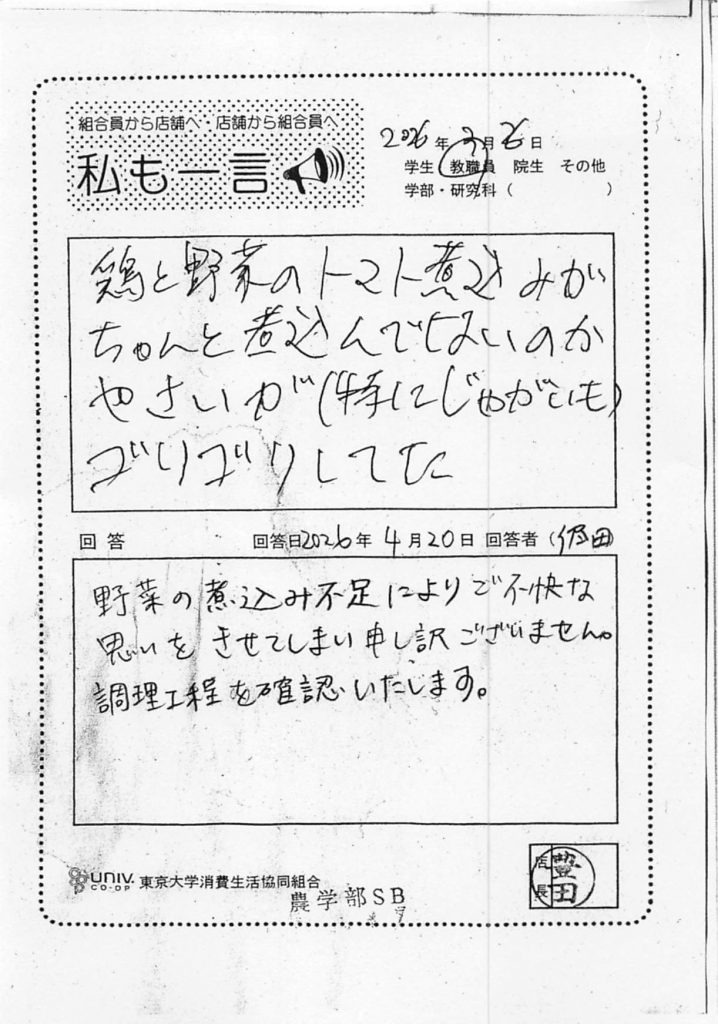 組合員から店舗へ・店舗から組合員へ
私も一言
2026年3月26日
学生 教職員 院生 その他
学部・研究科（ ）
鶏と野菜のトマト煮込みが
ちゃんと煮込んでないのか
やさいが(特にじゃがいも)
ゴリゴリしてた
回答 回答日2026年4月20日 回答者（ 田
野菜の煮込み不足によりご不快な
思いをさせてしまい申し訳ございません。
調理工程を確認いたします。
店長 豊田
UNIV. CO-OP 東京大学消費生活協同組合
農学部SB